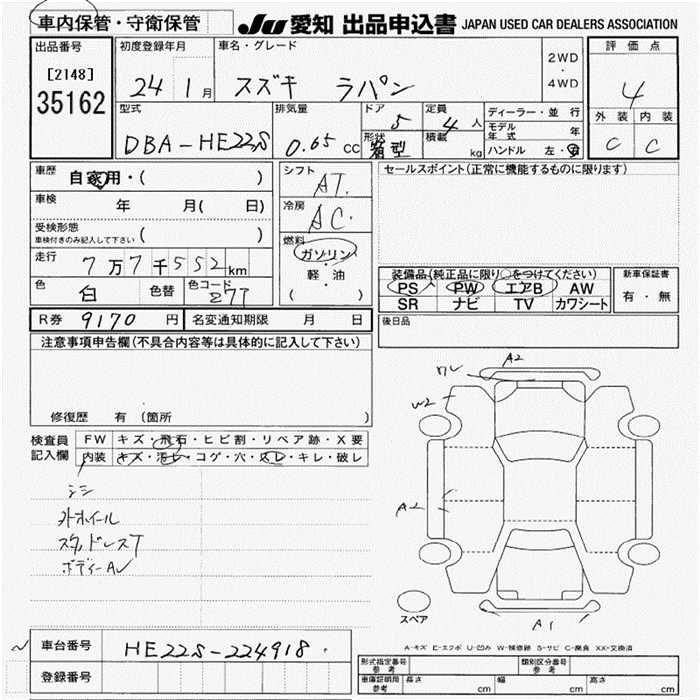 車内保管・守衛保管 JU 愛知 出品申込書 JAPAN USED CAR DEALERS ASSOCIATION
出品番号 初度登録年月 車名・グレード 評価点
[2148] 2WD
35162 24 1月 スズキ ラパン ・ 4
4WD
型式 排気量 ドア 定員 ディーラー・並 行 外装 内装
5 4人 モデル年式 年
DBA-HE22S 0.65cc 形状 積載 C C
箱型 kg ハンドル 左・右
車歴 自家用・( ) シフト AT. セールスポイント(正常に機能するものに限ります)
車検 年 月( 日) 冷房 AC.
受検形態
車検付きのみ記入して下さい ( ) 燃料
走行 7万7千552km ガソリン 装備品(純正品に限り○をつけてください) 新車保証書
軽・油 PS PW エアB AW
色 白 色替 色コード Z7T ( ) SR ナビ TV カワシート 有・無
R券 9170円 名変通知期限 月 日 後日品
注意事項申告欄(不具合内容等は具体的に記入して下さい)
A2
W2
修復歴 有(箇所
検査員 FW キズ・飛石・ヒビ割・リペア跡・X要
記入欄 内装 キズ・汚レ・コゲ・穴・スレ・キレ・破レ
A2
外ホイール
スタッドレスT
ボディーAU
スペア A1
A-キズ E-エクボ U-凹み W-補修跡 S-サビ C-腐食 XX-交換済
車台番号 HE22S-224918
形式指定番号 参考 類別区分番号 参考
登録番号 車庫証明用 参考 長さ cm 幅 cm 高さ cm